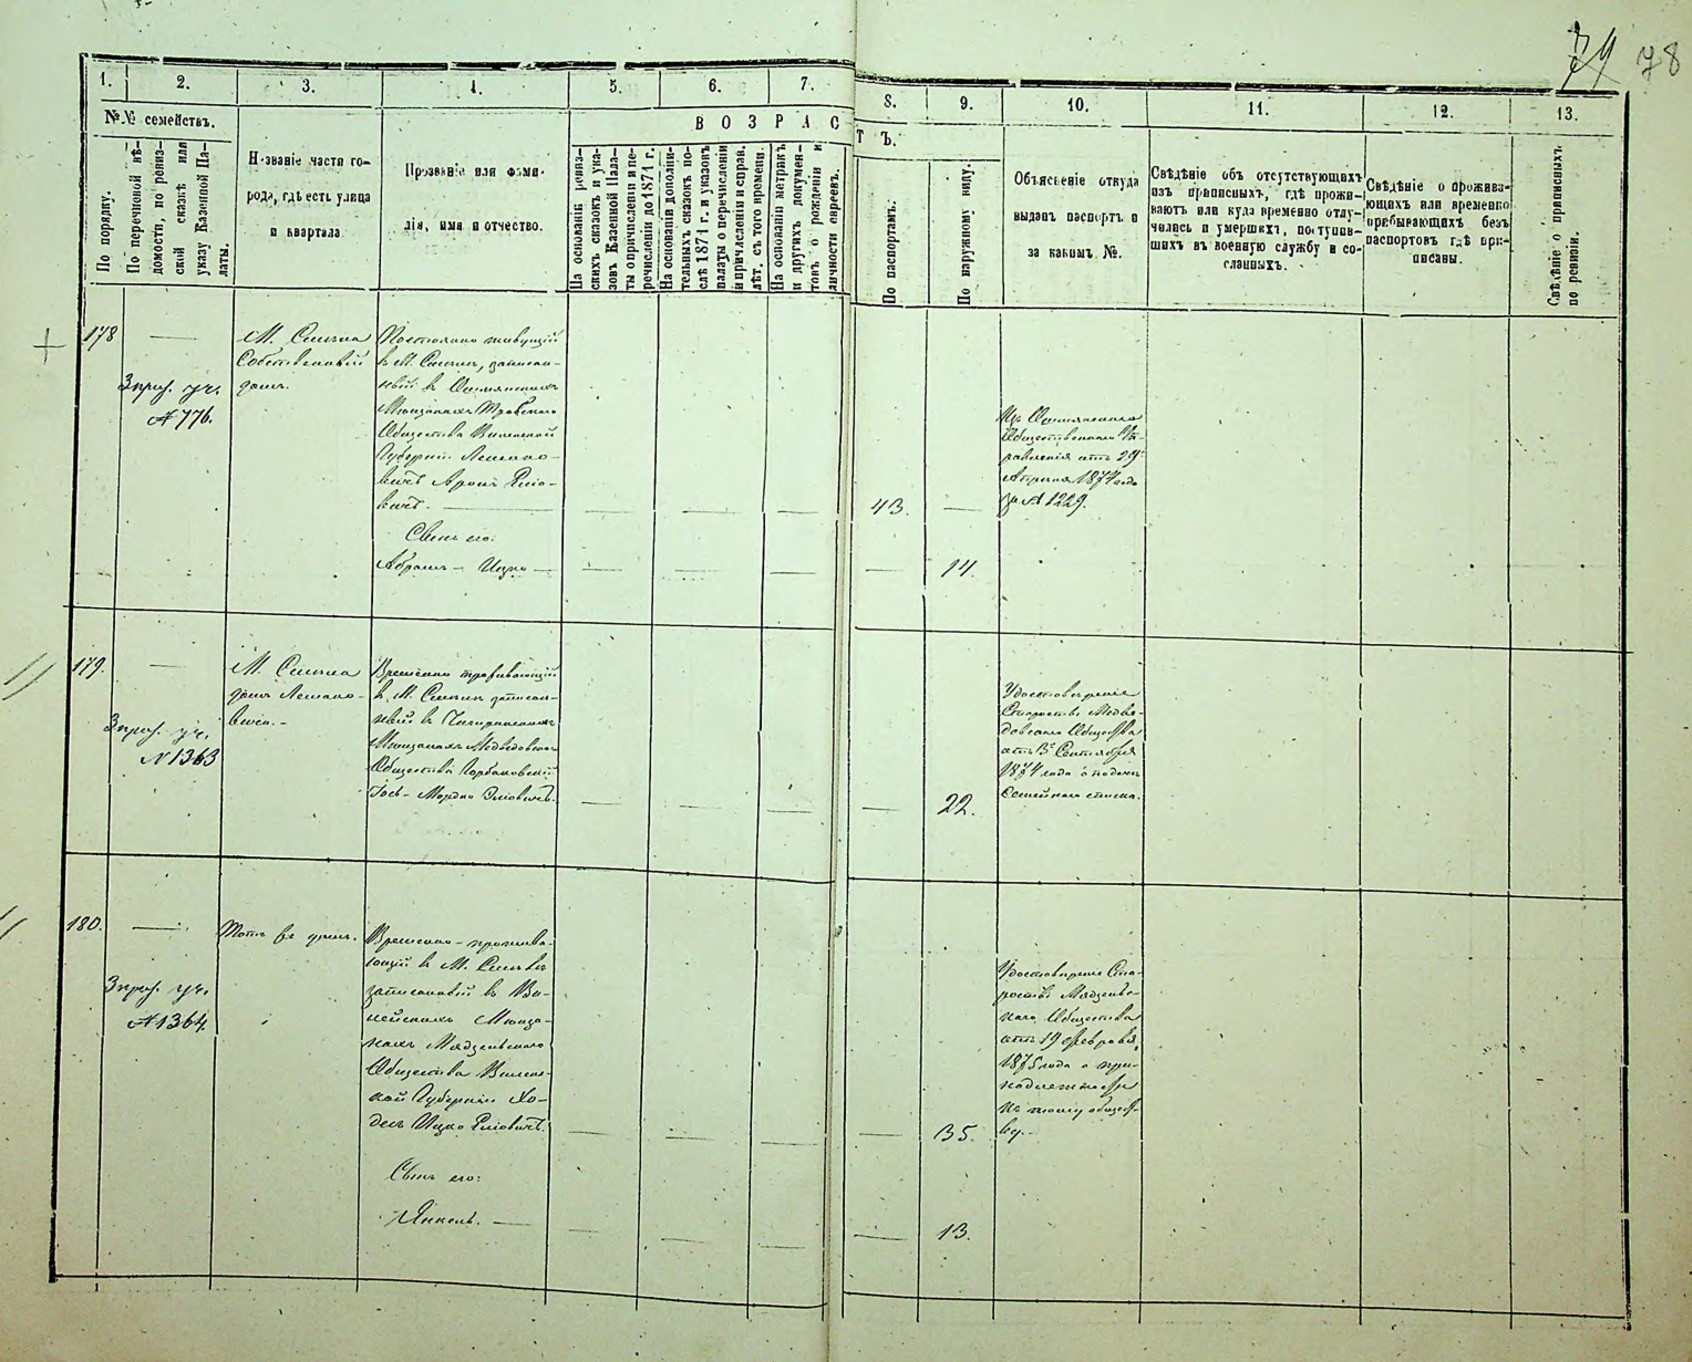 79 78
1. 2. 3. 4. 5. 6. 7. 8. 9. 10. 11. 12. 13.
№№ семействъ.
По порядку.
По перечневой вѣ-
домости, по ревиз-
ской сказкѣ или
указу Казенной Па-
латы.
Названіе части го-
рода, гдѣ есть улица
и квартала
Прозваніе или фами-
лія, имя и отчество.
ВОЗРАСТЪ.
На основаніи ревиз-
скихъ сказокъ и ука-
зовъ Казенной Пала-
ты о причисленіи и пе-
речисленіи до 1874 г.
На основаніи дополни-
тельныхъ сказокъ по-
слѣ 1874 г. и указовъ
палаты о перечисленіи
и причисленіи и справ.
лѣт. съ того времени.
На основаніи метрикъ
и другихъ докумен-
товъ о рожденіи и
личности евреевъ.
По паспортамъ.
По наружному виду.
Объясненіе откуда
выданъ паспортъ и
за какимъ №.
Свѣдѣніе объ отсутствующихъ
изъ приписныхъ, гдѣ прожи-
ваютъ или куда временно отлу-
чились и умершихъ, поступив-
шихъ въ военную службу и со-
сланныхъ.
Свѣдѣніе о прожива-
ющихъ или временно
пребывающихъ безъ
паспортовъ гдѣ при-
писаны.
Свѣдѣніе о приписныхъ
по ревизіи.
178
—
З приз. уч.
№ 776.
М. Смѣла
Собственный
домъ.
Постоянно живущій
въ М. Смѣлѣ, записан-
ный въ Ошмянскихъ
Мѣщанахъ Трабскаго
Общества Виленской
Губерніи
Аронъ Еліо-
вичъ.
43.
Изъ Ошмянскаго
Общественнаго Уп-
равленія отъ 29
Апрѣля 1874 года
за № 1229.
Сынъ его:
Абрамъ-Ицко
14.
179.
—
З приз. уч.
№ 1363
М. Смѣла
домъ
Временно пребывающій
въ М. Смѣлѣ записан-
ный въ Чигиринскихъ
Мѣщанахъ Медведовск.
Общества
Мордко Эліовичъ.
22.
Удостовѣреніе
Старосты Медвѣ-
довскаго Общества
отъ 13 Сентября
1874 года о подачѣ
Семейнаго списка.
180.
—
З приз. уч.
№ 1364.
Тотъ же домъ.
Временно-прожива-
ющій въ М. Смѣлѣ
записанный въ Ви-
лейскихъ Мѣща-
нахъ Мядзельскаго
Общества Вилен-
ской Губерніи Хо-
десъ Ицко Еліовичъ.
35.
Удостовѣреніе Ста-
росты Мядзель-
скаго Общества
отъ 19 Февраля
1875 года о при-
надлежности
къ тому общест-
ву.
Сынъ его:
Янкель.
13.